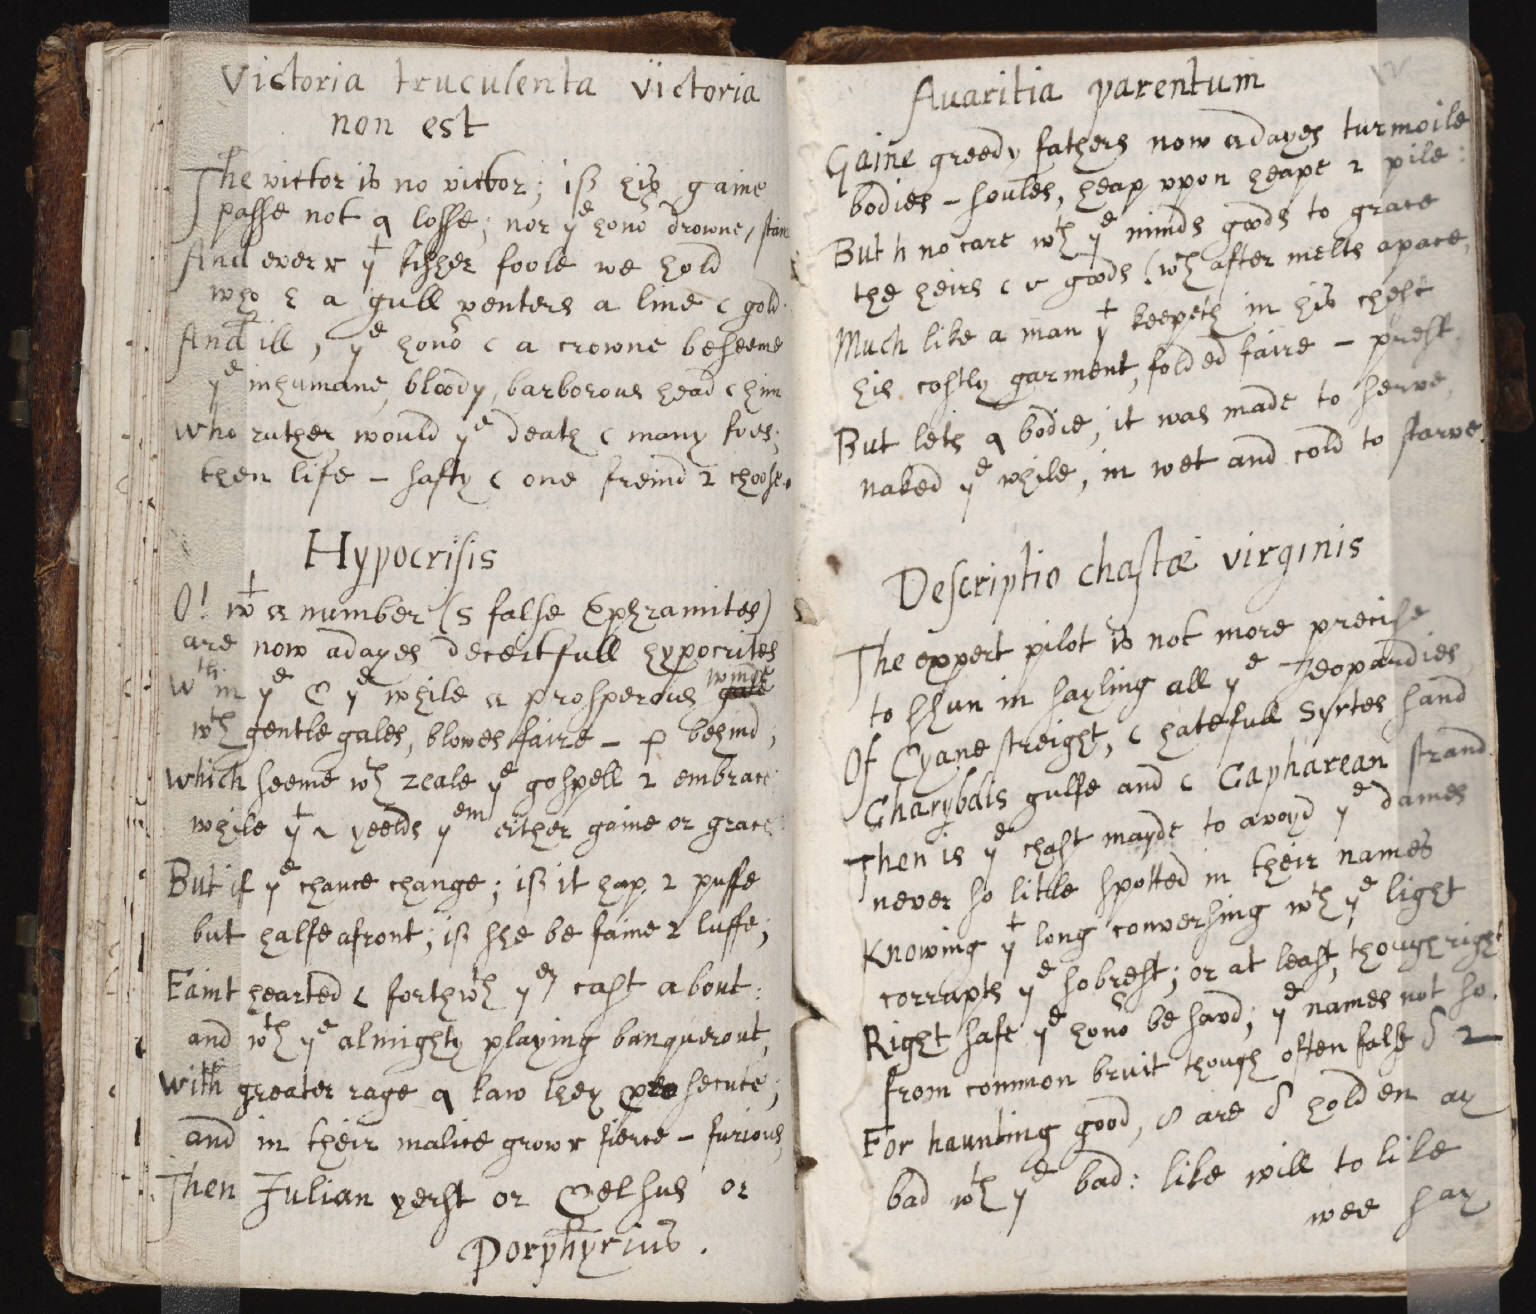 Victoria truculenta victoria
non est
The victor is no victor; iß his gaine
passe not q losse; nor yͤ honoʳ drowne, stain
And every yᵗ kisher foole we hold
who a gull venters a line c gold.
And ill, yͤ honoʳ c a crowne beseeme
yͤ inhumane, bloody, barborous head c him
Who rather would yͤ death c many foes;
then life – safty c one freind 2 choose.
Hypocrisis
O! wᵗ a number (s false Ephramites)
are now adayes deceitfull hypocrites
Wᵗʰ in yͤ & yͤ while a prosperous winde
wᵗʰ gentle gales, blowes faire – behind;
Which seeme wᵗʰ zeale yͤ gospell 2 embrace
while yᵗ yeelds yᵉᵐ either gaine or grace
But if yͤ chance change; iß it hap 2 puffe
but halfe afront; iß she be faine 2 luffe;
Faint hearted c forthwᵗʰ yᵉʸ cast about:
and wᵗʰ yͤ almighty playing banquerout,
With greater rage q law they persecute;
and in their malice grow fierce – furious
Then Julian yerst or Celsus or
Porphyrius.
Avaritia parentum
Gaine greedy fathers now adayes turmoile
bodies – soules, heap vpon heape 2 pile:
But h no care wᵗʰ yͤ minds goods to grace
the heirs c goods (wᶜʰ after melts apace,
Much like a man yᵗ keepeth in his chest
his costly garment, folded faire – prest,
But lets q bodie, it was made to serve,
naked yͤ while, in wet and cold to starve.
Descriptio chastæ virginis
The expert pilot is not more precise
to shun in sayling all yͤ Jeopardies
Of Cyane streight, c hatefull Syrtes sand
Charybdis gulfe and c Capharean strand.
Then is yͤ chast mayde to avoyd yͤ dames
never so little spotted in their names
Knowing yᵗ long conversing wᵗʰ yͤ light
corrupts yͤ sobrest; or at least, though right
Right safe yͤ honoʳ be savd; yͤ names not so.
from common bruit though often false δ 2
For haunting good, are δ holden ay
bad wᵗʰ yͤ bad: like will to like
wee say